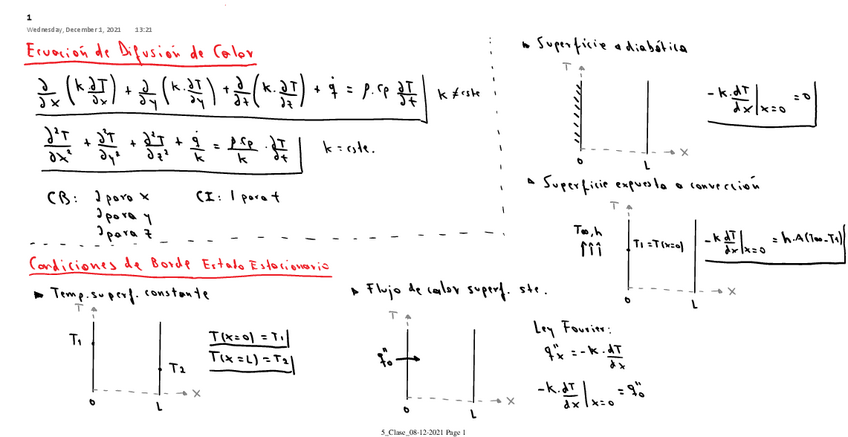 1
Wednesday, December 1, 2021 13:21
Ecuación de Difusión de Calor
∂/∂x (k ∂T/∂x) + ∂/∂y (k. ∂T/∂y) + ∂/∂z (k. ∂T/∂z) + q̇ = ρ.cp ∂T/∂t k ≠ cste
∂²T/∂x² + ∂²T/∂y² + ∂²T/∂z² + q̇/k = ρ cp/k . ∂T/∂t k = cste.
CB: 2 para x CI: 1 para t
2 para y
2 para z
Condiciones de Borde Estado Estacionario
▶ Temp. superf. constante
T
T1
T2
0
L
x
T(x=0) = T1
T(x=L) = T2
▶ Flujo de calor superf. ste.
T
q"0
0
L
x
Ley Fourier:
q"x = -k. dT/dx
-k. dT/dx |x=0 = q"0
Superficie adiabática
T
0
L
x
-k. dT/dx |x=0 = 0
Superficie expuesta a convección
T
T∞, h
T1 = T(x=0)
0
L
x
-k dT/dx |x=0 = h.A(T∞-T1)
5_Clase_08-12-2021 Page 1